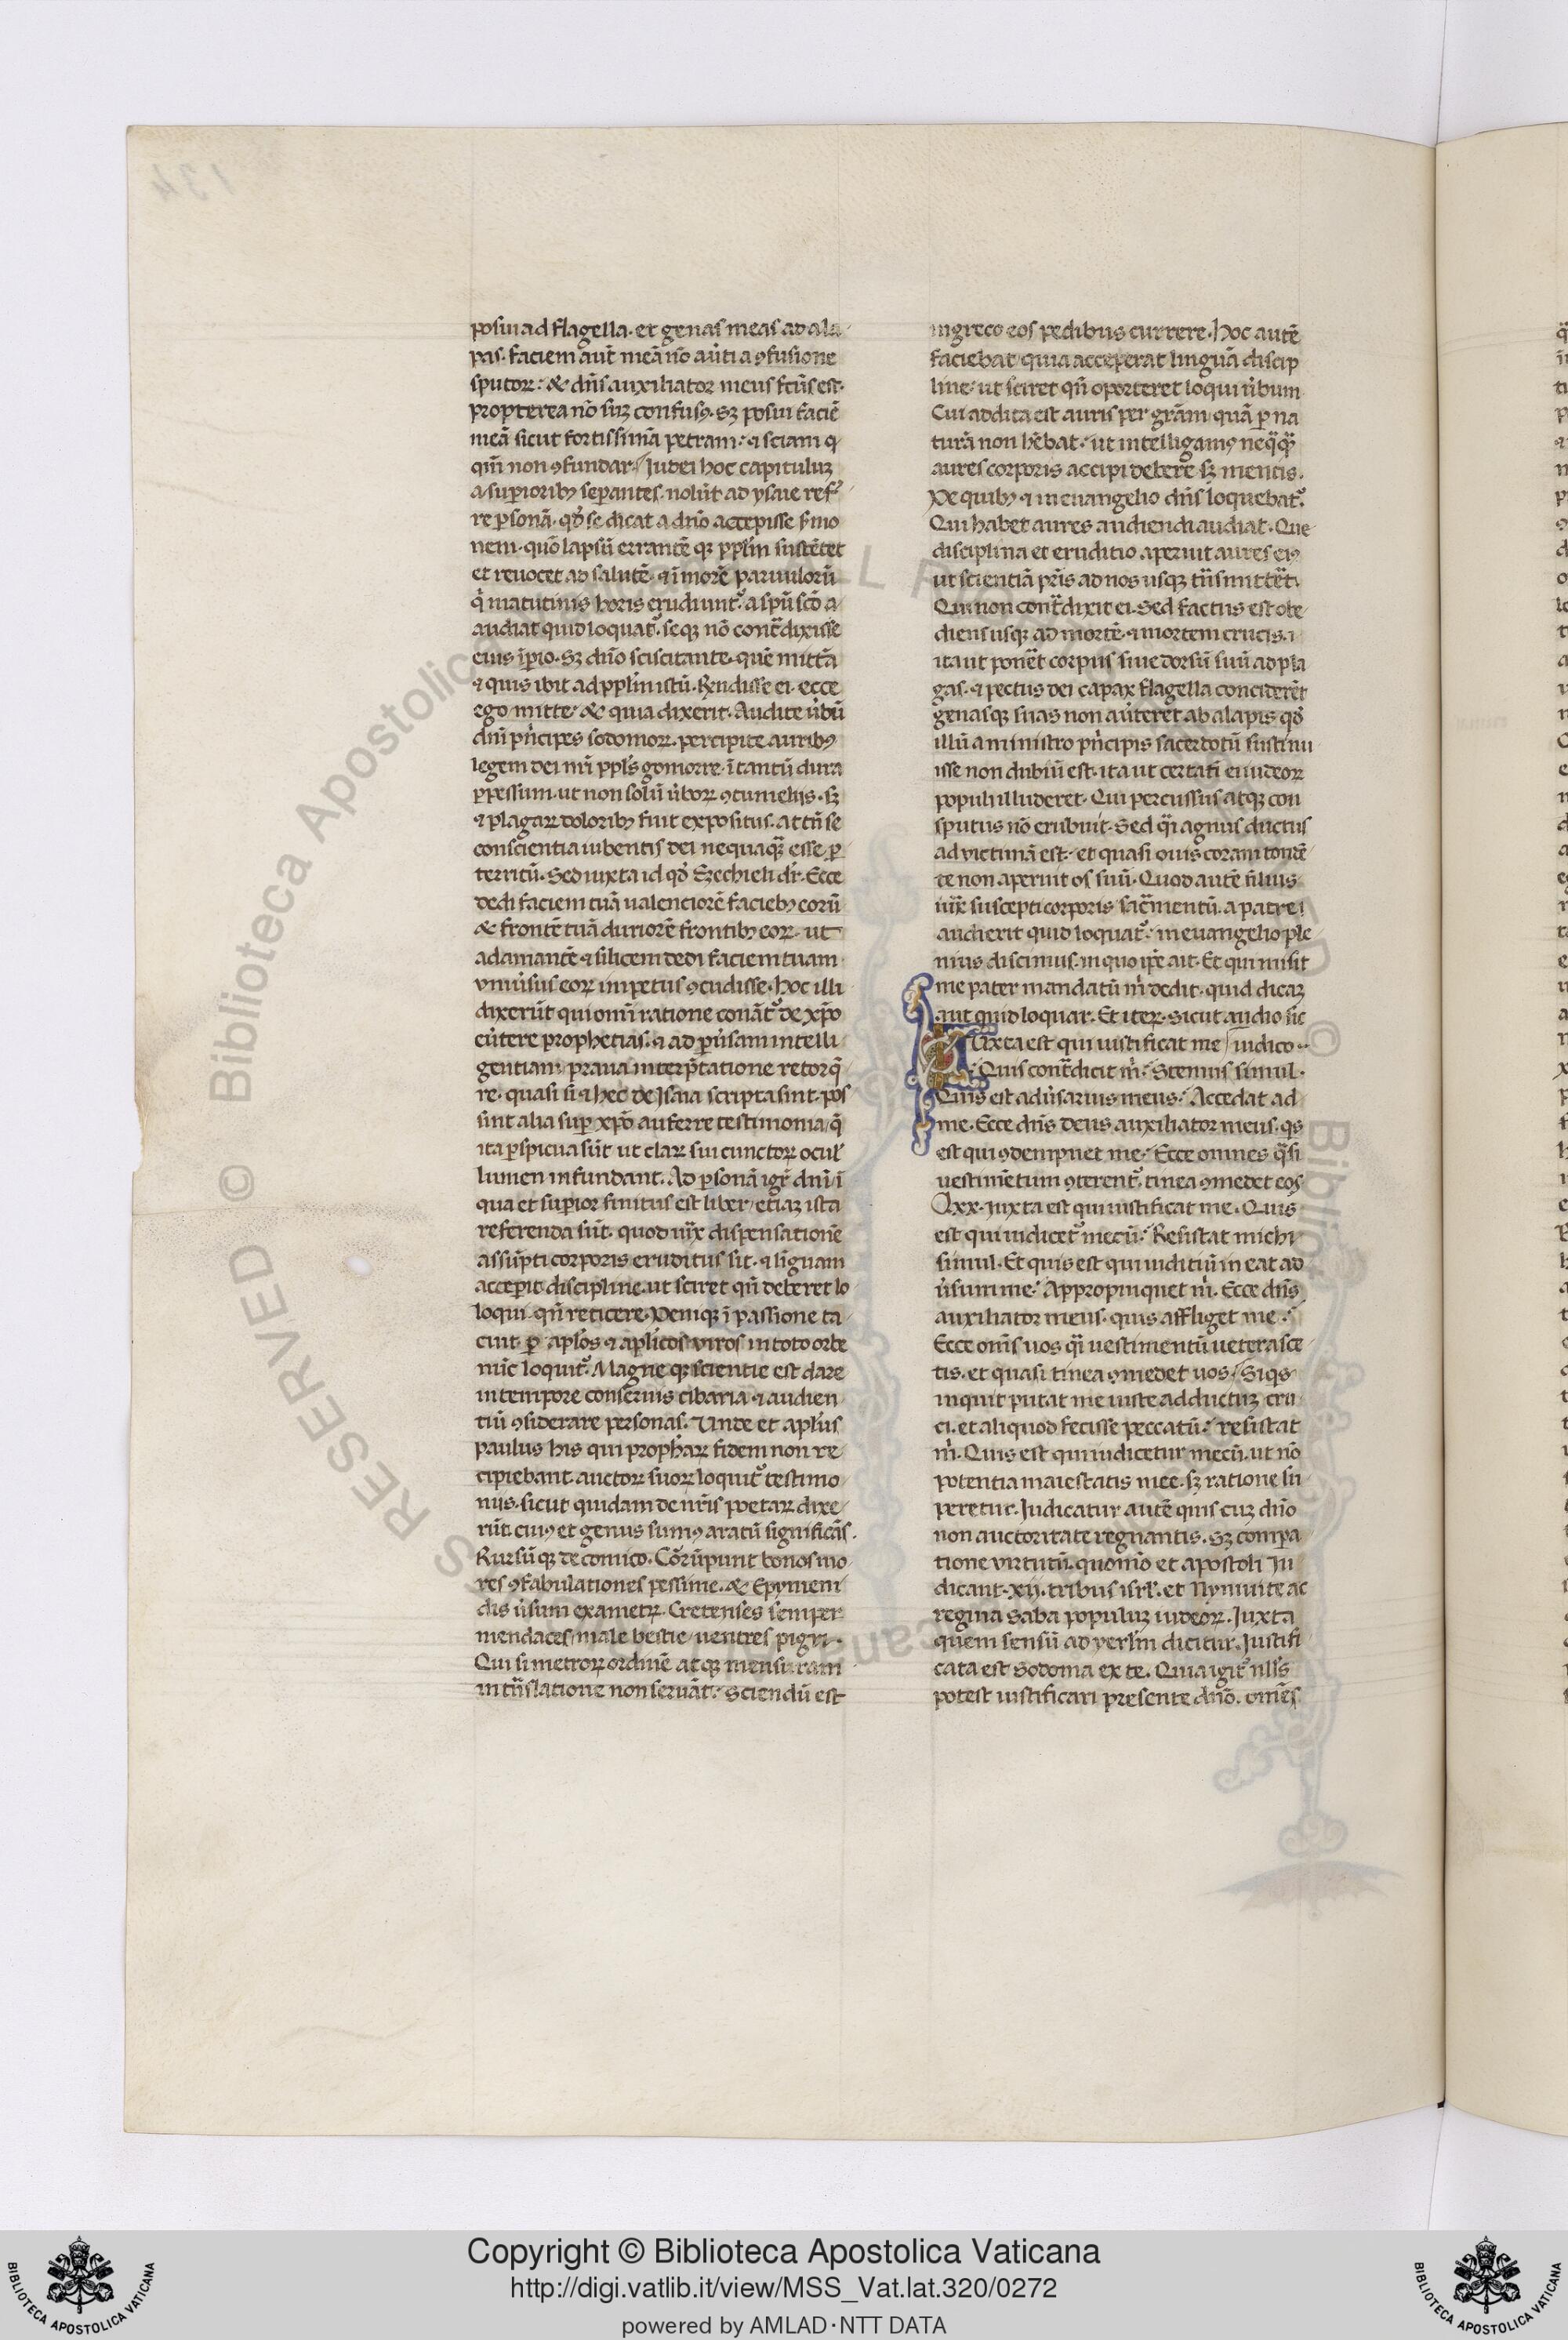 posui ad flagella. et genas meas ad ala
pas. faciem aut̄ meā nō aūti a ꝯfusione
sputoꝝ: & dn̄s auxiliator meus fcūs est.
propterea nō suꝫ confusꝰ. sꝫ posui faciē
meā sicut fortissimā petram: ⁊ sciam q
qm̄ non ꝯfundar. Iudei hoc capituluꝫ
a supioribꝫ sepantes. nolūt ad ysaie ref
re ꝑsonā. qđ se dicat a dn̄o accepisse ẜmo
nem. quō lapsū errantē qꝫ pplm̄ sustētet
et reuocet ad salutē. ⁊ ī morē paruulorū
q̇ matutinis horis erudiunt᷑. a spū scō a
audiat quid loquat᷑. seqꝫ nō cont̄dixisse
eius īpio. Sꝫ dn̄o sciscitante. quē mittā
⁊ quis ibit ad pplm̄ istū. Rn̄disse ei. ecce
ego mitte. & quia dixerit. Audite ūbū
dn̄i pn̄cipes sodomoꝝ. percipite auribꝰ
legem dei nr̄i ppls̄ gomorre. ī tantū dura
ꝑpessum. ut non solū ūboꝝ ꝯtumeliis. sꝫ
⁊ plagaꝝ doloribꝫ fuit expositus. at tn̄ se
conscientia iubentis dei nequaqꝫ esse ꝑ
territū. Sed iuxta id qđ Ezechieli dr̄. Ecce
dedi faciem tuā ualentiorē faciebꝫ eorū
& frontē tuā duriorē frontibꝫ eoꝝ. ut
adamantē ⁊ silicem dedi faciem tuam.
vniūsus eoꝝ impetus ꝯcudisse. Hoc illi
dixerūt qui omī ratione conāt᷑ de xp̄o
eūtere prophetias. ⁊ ad ꝑūsam intelli
gentiam praua interp̄tatione retorq̄
re. quasi si ⁊ hec de Isaia scripta sint. pos
sint alia sup xp̄o auferre testimonia. q̄
ita ꝑspicua sūt ut claꝝ sui cunctoꝝ ocul'
lumen infundant. Ad ꝑsonā igr̄ dn̄i ī
qua et supior finitus est liber. etiaꝫ ista
referenda sūt. quod iux̄ dispensationē
assūpti corporis eruditus sit. ⁊ linguam
acceperit discipline. ut sciret qn̄ deberet lo
loqui. qn̄ reticere. Deniqꝫ ī passione ta
cuit. ꝑ aplōs ⁊ aplicos viros in toto orbe
nūc loquit᷑. Magne qꝫ scientie est dare
in tempore conseruis cibaria. ⁊ audien
tiū ꝯsiderare personas. Unde et aplūs
paulus his qui prophaꝝ fidem non re
cipiebant. auctoꝝ suoꝝ loquit᷑ testimo
niis. sicut quidam de nr̄is poetaꝝ dixe
rūt. cuiꝰ et genus sumꝰ aratū significās.
Rursūqꝫ de comico. Corrūpunt bonos mo
res ꝯfabulationes pessime. & Epymeni
dis ūsum exametꝝ. Cretenses semper
mendaces. male bestie. uentres pigri.
Qui si metroꝝ ordinē atqꝫ mensuram
in tn̄slatione non seruāt: Sciendū est
in greco eos pedibus currere. Hoc autē
faciebat quia acceperat linguā discip
line: ut sciret qn̄ oporteret loqui ūbum
Cui addita est auris per grām quā ꝑ na
turā non hēbat. ut intelligamꝰ neq̄qꝫ
aures corporis accipi debere sꝫ mentis.
De quibꝫ ⁊ in euangelio dn̄s loquebat᷑.
Qui habet aures audiendi audiat. Que
disciplina et eruditio aperuit aures eiꝰ
ut scientiā pr̄is ad nos usqꝫ tn̄smittēt.
Qui non cont̄dixit ei. Sed factus est obe
diens usqꝫ ad mortē. ⁊ mortem crucis. ⁊
ita ut ponet corpus siue dorsū suū ad pla
gas. ⁊ pectus dei capax flagella conciderēt
genasqꝫ suas non aūteret ab alapis qđ
illū a ministro pn̄cipis sacerdotū sustinu
isse non dubiū est. ita ut certati ei iudeoꝝ
populi illuderet. Qui percussus atqꝫ con
sputus nō erubuit. Sed q̄i agnus ductus
ad victimā est. et quasi ouis coram tondē
te non aperuit os suū. Quod autē filius
iux̄ suscepti corporis sac̄mentū. a patre
audierit quid loquat᷑. in euangelio ple
nius discimus. in quo ip̄e ait. Et qui misit
me pater mandatū m̄ dedit. quid dicaꝫ
aut quid loquar. Et iteꝝ. Sicut audio sic
Iuxta est qui iustificat me iudico.
Quis cont̄dicit m̄. Stemus simul.
Quis est adūsarius meus. Accedat ad
me. Ecce dn̄s deus auxiliator meus. qͥs
est qui ꝯdempnet me. Ecce omnes q̄si
uestimētum ꝯterent᷑. tinea ꝯmedet eos
Lxx. Iuxta est qui iustificat me. Quis
est qui iudicet᷑ mecū. Resistat michi
simul. Et quis est qui iuditiū ineat ad
ūsum me. Appropinquet m̄. Ecce dn̄s
auxiliator meus. quis affliget me.
Ecce om̄s uos q̄i uestimentū ueterasce
tis. et quasi tinea ꝯmedet uos. Si qͥs
inquit putat me iuste adductuꝫ cru
ci. et aliquod fecisse peccatū. resistat
m̄. Quis est qui iudicetur mecū. ut nō
potentia maiestatis mee. sꝫ ratione su
peretur. Iudicatur autē quis cuꝫ dn̄o
non auctoritate regnantis. Sꝫ compa
tione virtutū. quomō et apostoli iu
dicant. xij. tribus isrl'. et Nyniuite ac
regina Saba populuꝫ iudeoꝝ. Iuxta
quem sensū ad yerlm̄ dicitur. Iustifi
cata est Sodoma ex te. Quia igit᷑ nlls̄
potest iustificari presente dn̄o. omēs
Copyright © Biblioteca Apostolica Vaticana
http://digi.vatlib.it/view/MSS_Vat.lat.320/0272
powered by AMLAD·NTT DATA